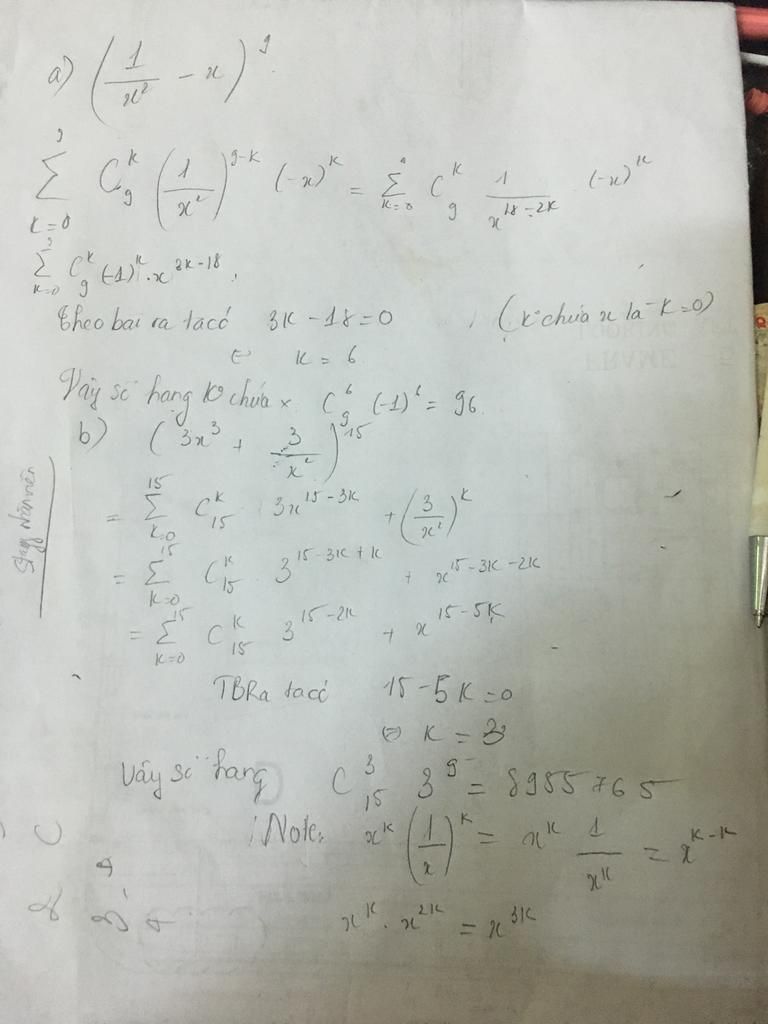 a) (1/x² - x)⁹
∑_{k=0}^{9} C₉ᵏ (1/x²)^{9-k} (-x)ᵏ = ∑_{k=0} C₉ᵏ 1/x^{18-2k} (-x)ᵏ
∑_{k=0}^{9} C₉ᵏ (-1)ᵏ . x^{3k-18} .
Theo bai ra ta có 3k - 18 = 0 (k° chứa x là k = 0)
⇔ k = 6
Vậy số hạng k° chứa x C₉⁶ (-1)⁶ = 96.
b) (3x³ + 3/x²)¹⁵
= ∑_{k=0}^{15} C₁₅ᵏ 3x^{15-3k} + (3/x²)ᵏ
= ∑_{k=0}^{15} C₁₅ᵏ 3^{15-3k+k} + x^{15-3k-2k}
= ∑_{k=0}^{15} C₁₅ᵏ 3^{15-2k} + x^{15-5k}
TBRa ta có 15 - 5k = 0
⇔ k = 3
Vậy số hạng C₁₅³ 3⁹ = 8955765
Note: xᵏ (1/x)ᵏ = xᵏ 1/xᵏ = x^{k-k}
xᵏ . x^{2k} = x^{3k}